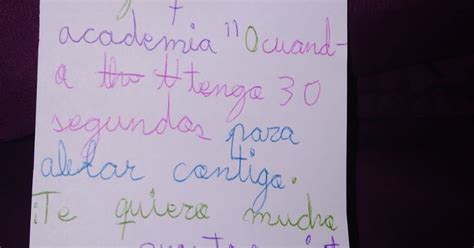 academia" O cuand-
o tengo 30
segundos para
contigo.
¡Te quiero mucho